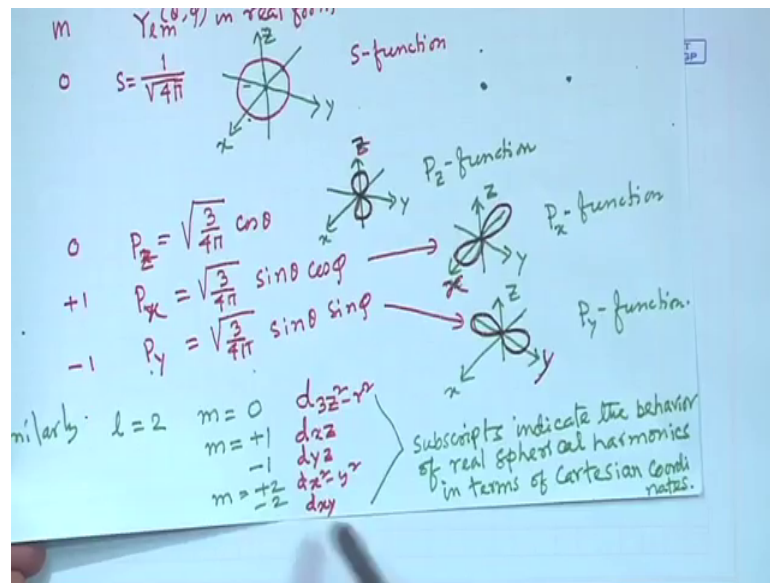 m Yℓm(θ,φ) in real form
0 S = 1/√4π
Z
Y
x
S-function
Z
Y
x
Pz-function
0 Pz = √3/4π cosθ
Z
Y
x
Px-function
+1 Px = √3/4π sinθ cosφ
-1 Py = √3/4π sinθ sinφ
Z
Y
x
Py-function.
nilarly. l=2 m=0 d3z²-r²
m=+1 dxz
-1 dyz
m=+2 dx²-y²
-2 dxy
Subscripts indicate the behavior
of real spherical harmonics
in terms of Cartesian Coordi
nates.